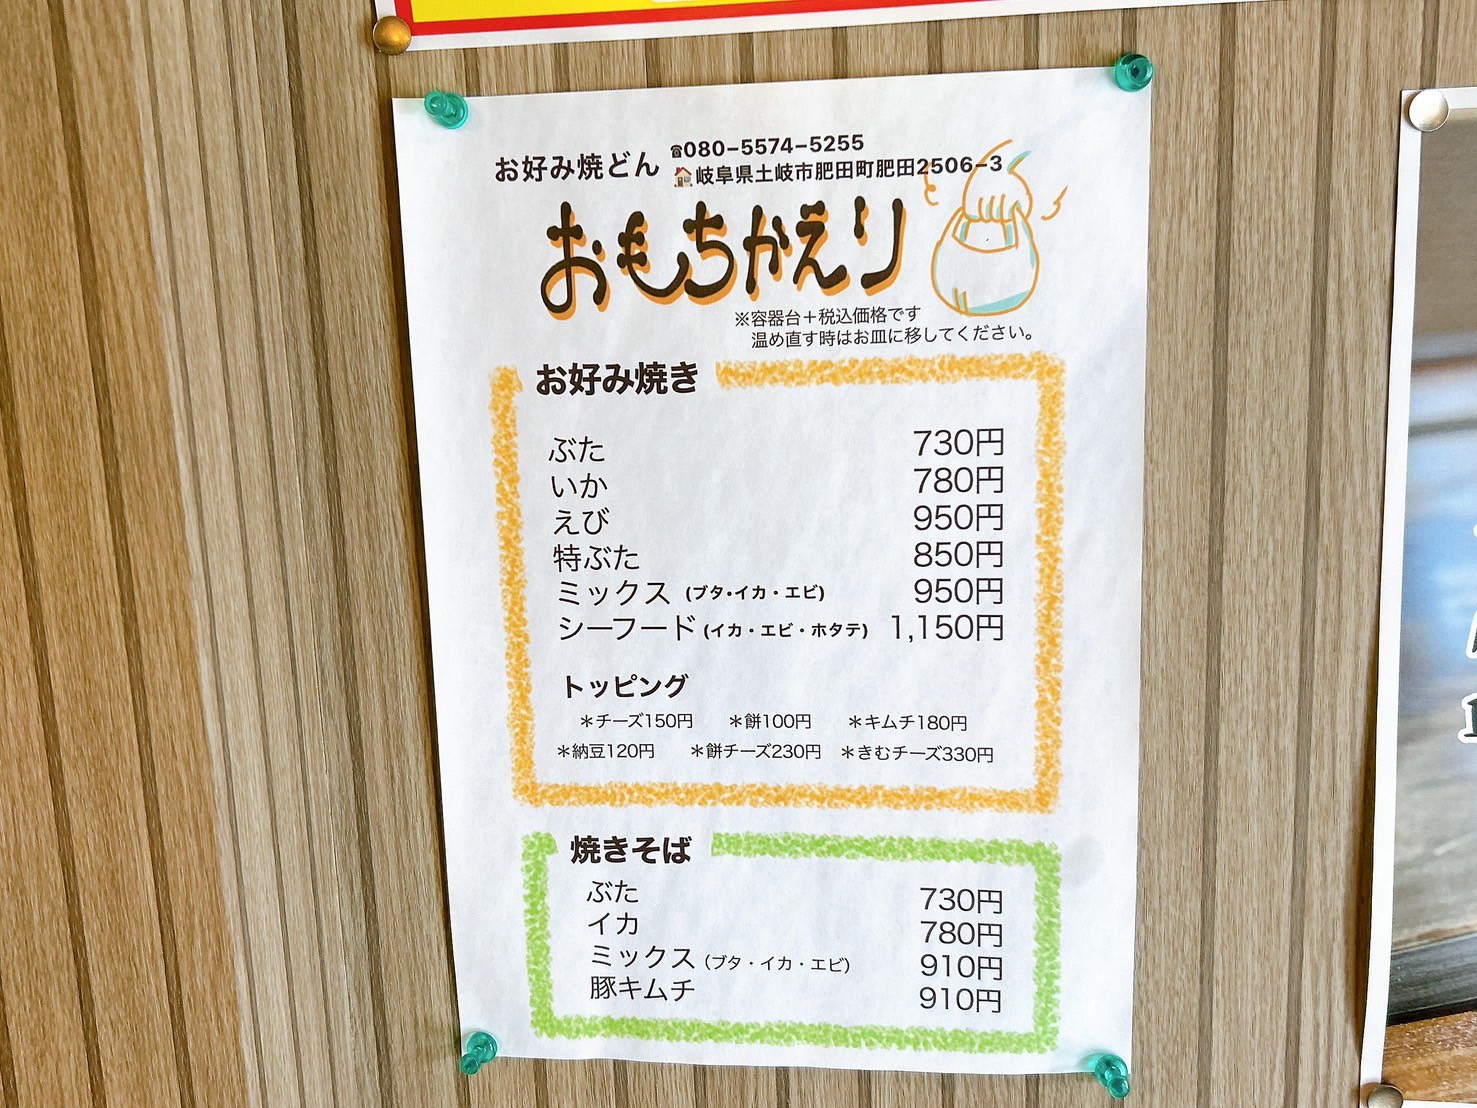 お好み焼どん
☎080-5574-5255
🏠岐阜県土岐市肥田町肥田2506-3
おもちかえり
※容器台＋税込価格です
温め直す時はお皿に移してください。
お好み焼き
ぶた 730円
いか 780円
えび 950円
特ぶた 850円
ミックス (ブタ・イカ・エビ) 950円
シーフード (イカ・エビ・ホタテ) 1,150円
トッピング
＊チーズ150円 ＊餅100円 ＊キムチ180円
＊納豆120円 ＊餅チーズ230円 ＊きむチーズ330円
焼きそば
ぶた 730円
イカ 780円
ミックス（ブタ・イカ・エビ） 910円
豚キムチ 910円